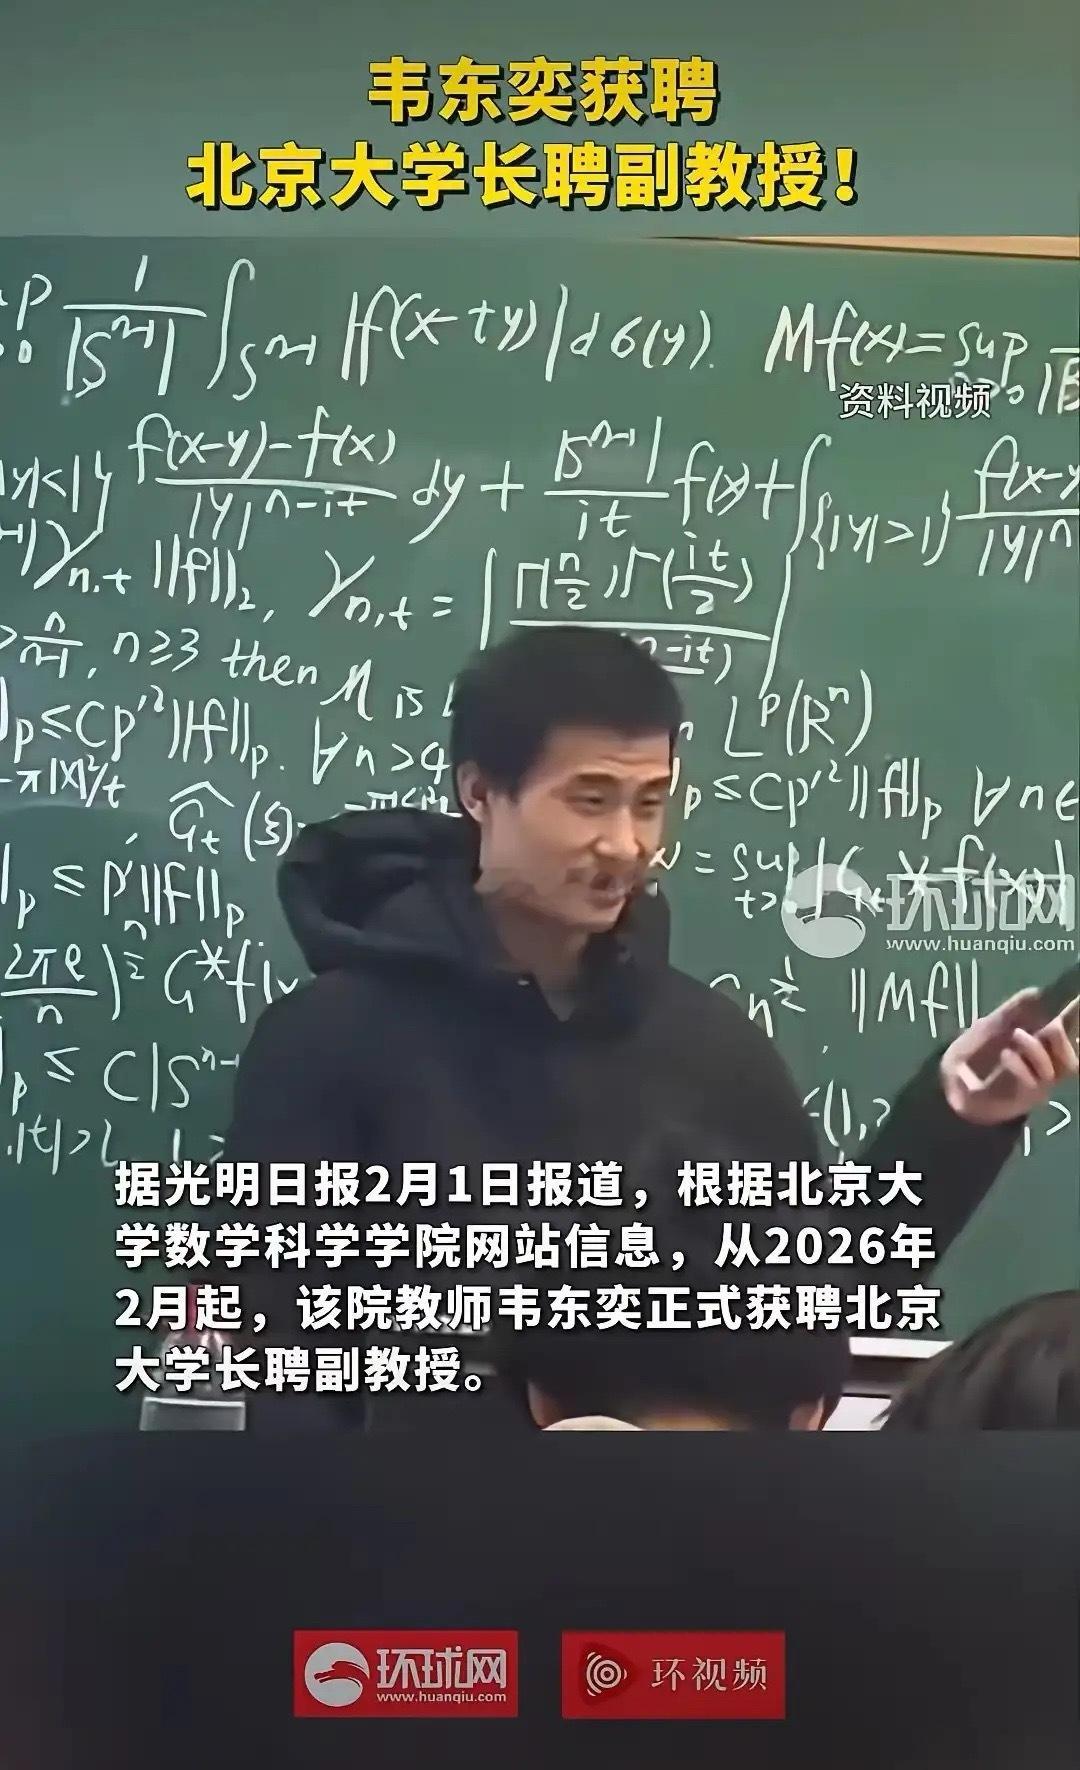 韦东奕获聘
北京大学长聘副教授！
1/|S^{n-1}| ∫_{S^{n-1}} |f(x-ty)|dσ(y). Mf(x)=sup
资料视频
|y|<1} f(x-y)-f(x)/|y|^{n-it} dy + |S^{n-1}|/it f(x)+∫_{{|y|>1} f(x-y
γ_{n,t} ||f||_2, γ_{n,t} = Γ(n/2)Γ(it/2)
n/n-1, n≥3 then M is
L^p(R^n)
p≤Cp'^2||f||_p. ∀n>4
p≤Cp'^2||f||_p ∀n∈
-π|x|^2/t
Ĝ_t(ξ)
= sup
p ≤ p'||f||_p
环球网
www.huanqiu.com
||Mf||
p ≤ C|S^{n-1}
据光明日报2月1日报道，根据北京大
学数学科学学院网站信息，从2026年
2月起，该院教师韦东奕正式获聘北京
大学长聘副教授。
环球网
www.huanqiu.com
环视频